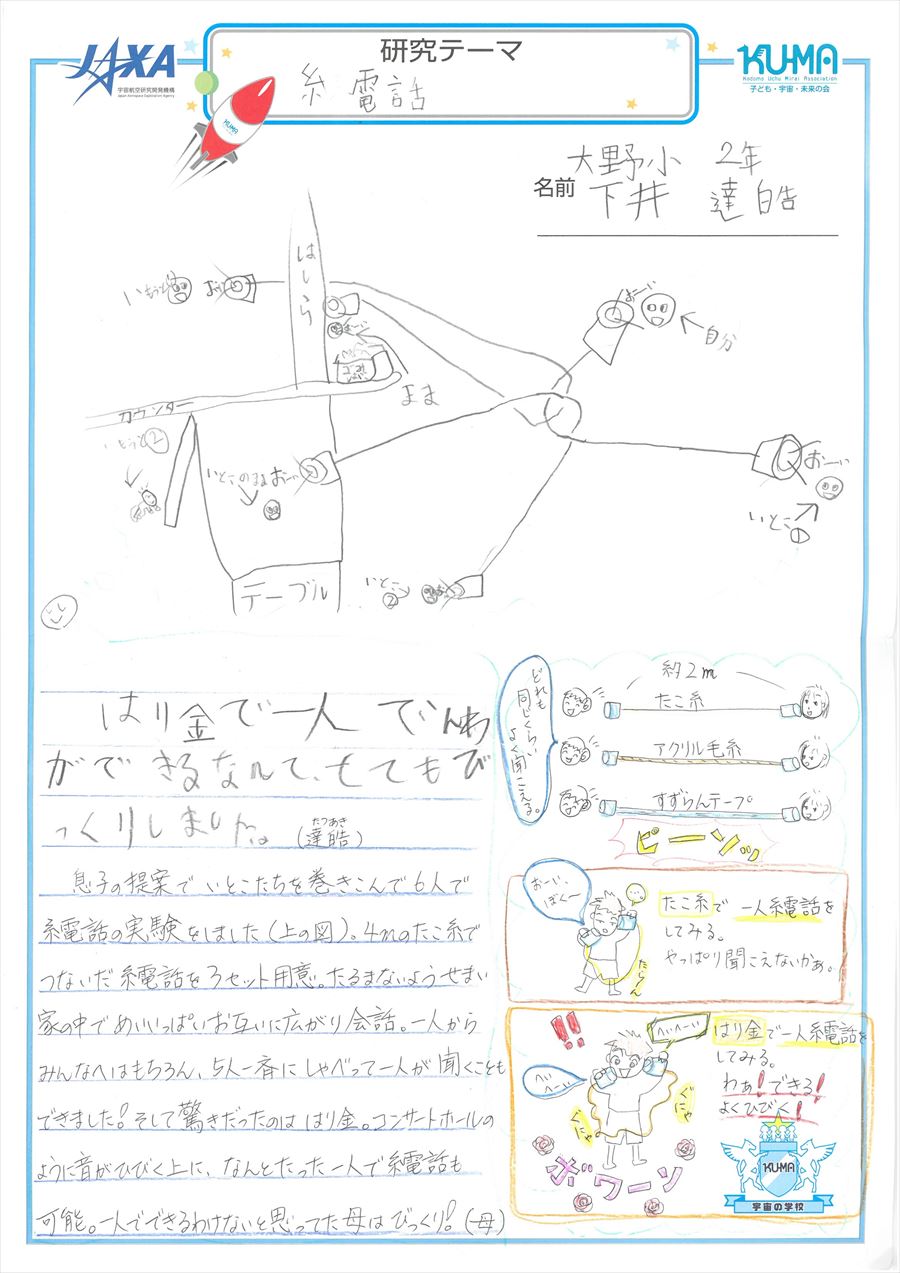 JAXA
宇宙航空研究開発機構
Japan Aerospace Exploration Agency
研究テーマ
糸電話
KUMA
KUMA
Kodomo Uchu Mirai Association
子ども・宇宙・未来の会
大野小 2年
名前 下井 達皓
はしら
いもうと
おーい
おーい
自分
おーい
まま
カウンター
いとうと②
いとこのまま おーい
おーい
いとこ
①
いとこ
②
テーブル
はり金で一人 でんわ
ができるなんて、とてもび
っくりしました。(達皓)
たつあき
息子の提案でいとこたちを巻きこんで6人で
糸電話の実験をしました(上の図)。4mのたこ糸で
つないだ糸電話を3セット用意。たるまないようせまい
家の中でめいいっぱいお互いに広がり会話。一人から
みんなへはもちろん、5人一斉にしゃべって一人が聞くことも
できました!そして驚きだったのははり金。コンサートホールの
ように音がひびく上に、なんとたった一人で糸電話も
可能。一人でできるわけないと思ってた母はびっくり!(母)
どれも
同じくらい
よく聞こえる。
約2m
たこ糸
アクリル毛糸
すずらんテープ
ピーンッ
おーい、
ぼくー
たら〜ん
たこ糸で一人糸電話を
してみる。
やっぱり聞こえないかぁ。
!!
へいへーい
へい
へーい
ぐにゃ
ぐにゃ
ボワーン
はり金で一人糸電話を
してみる。
わぁ!できる!
よくひびく!
KUMA
宇宙の学校